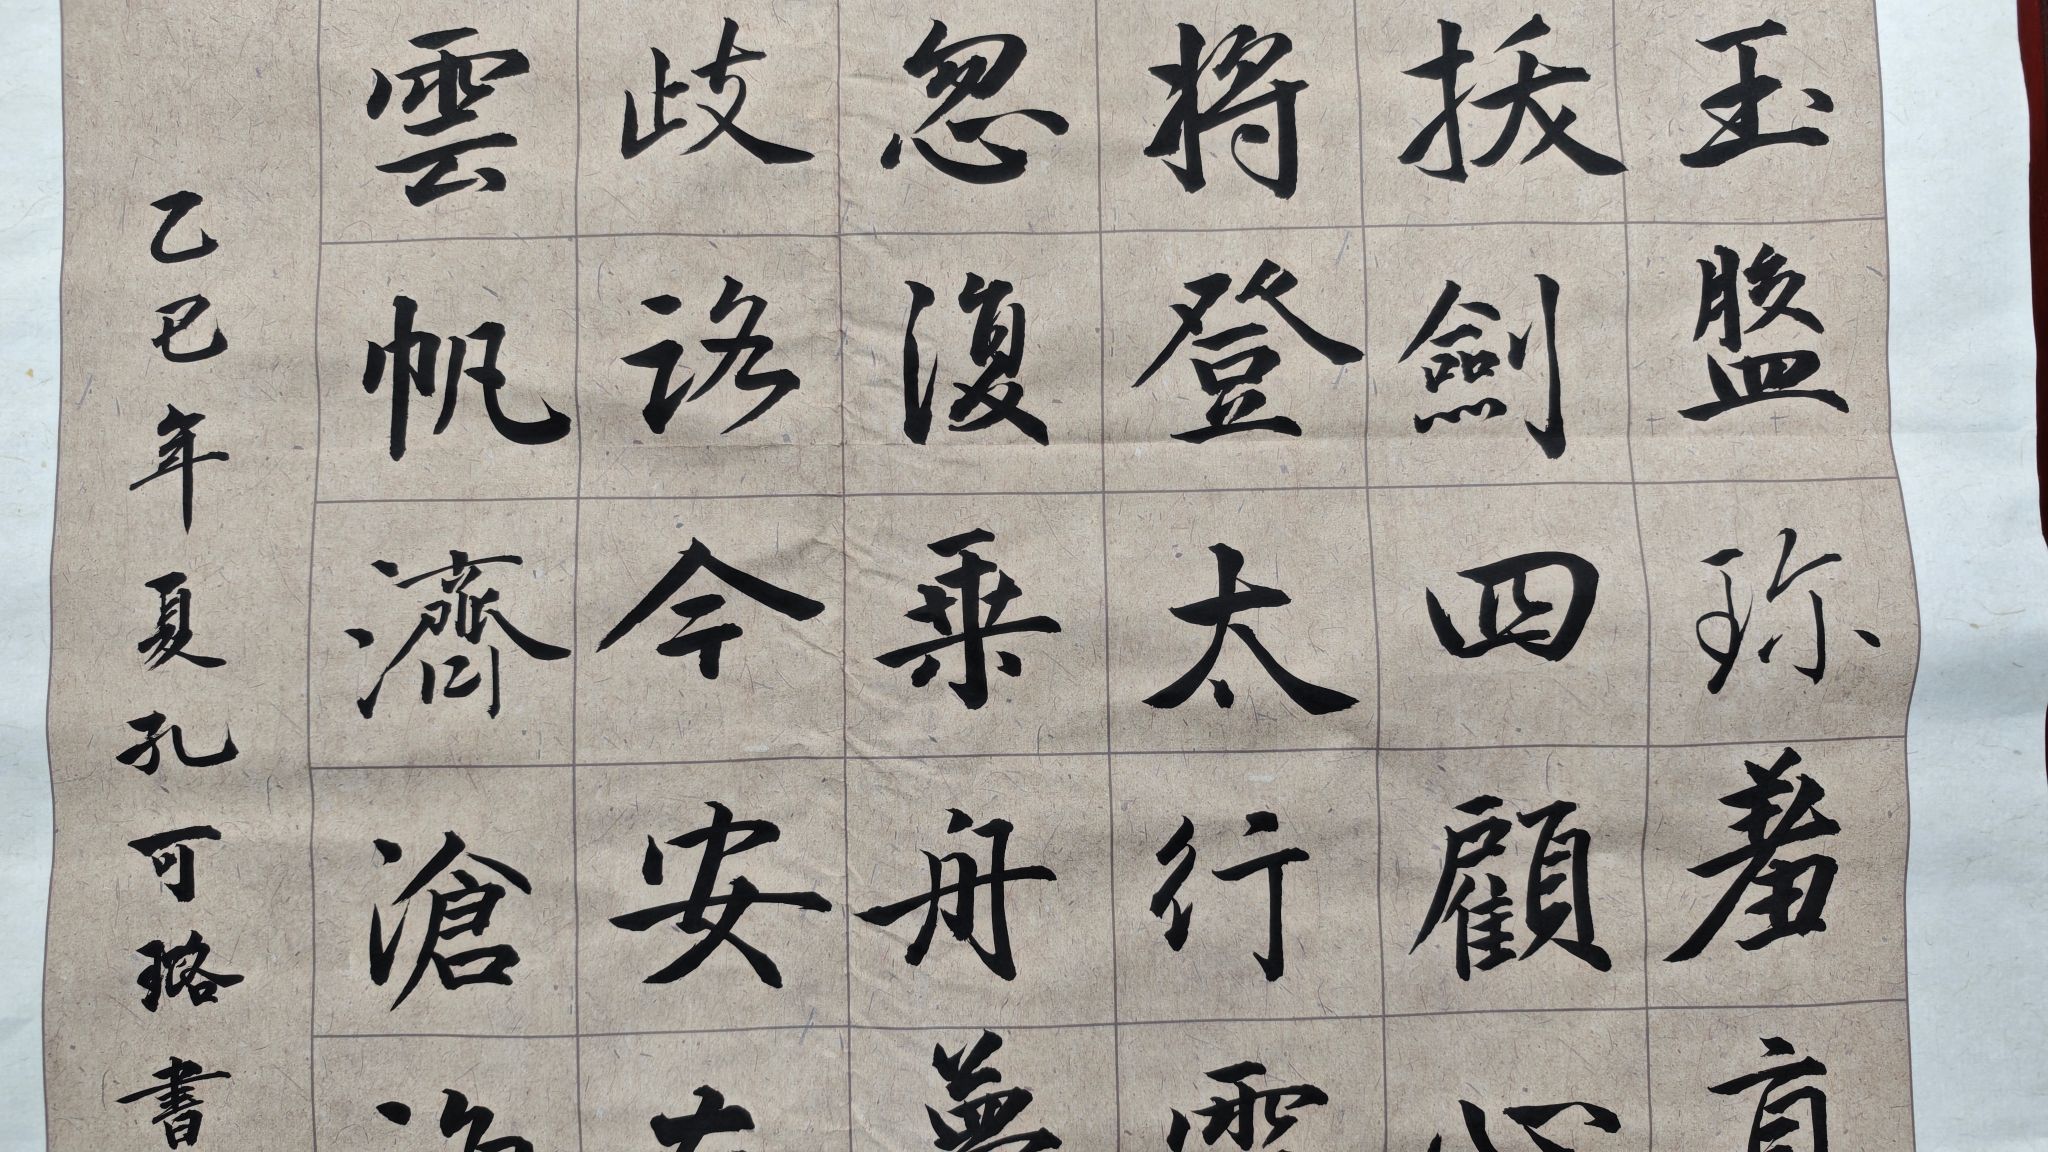 玉盤珍羞直
拔劍四顧心
将登太行雪
忽復乗舟夢
歧路今安在
雲帆濟滄海
乙巳年夏孔可璐書